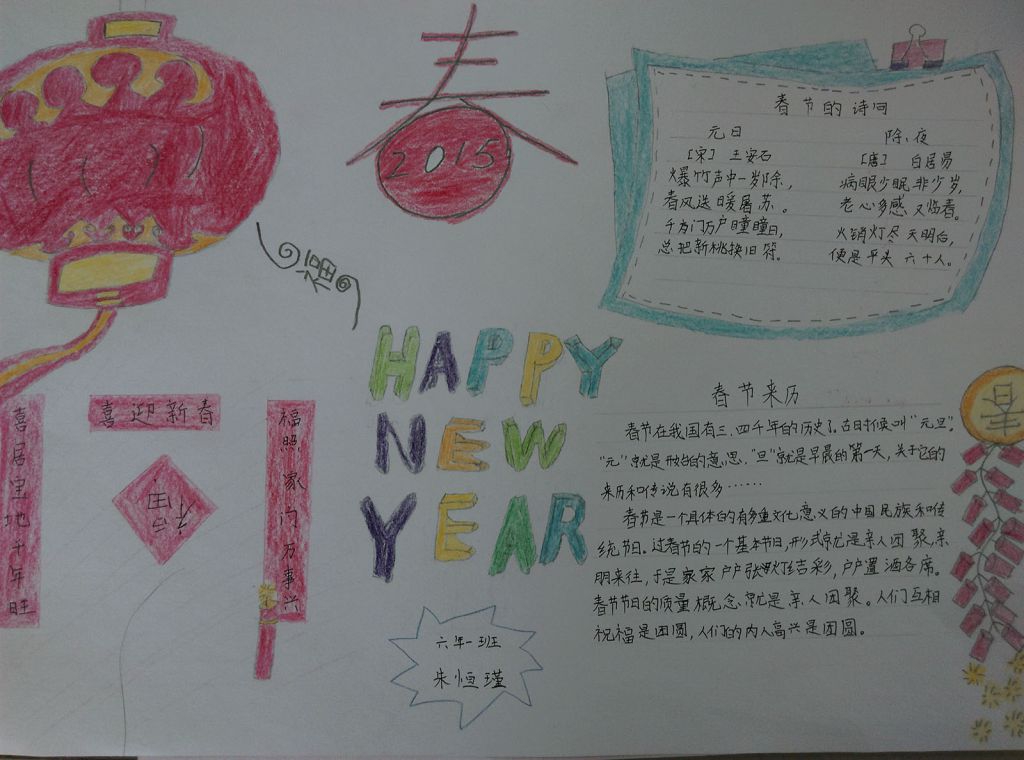 春
2015
福
春节的诗词
元日
[宋] 王安石
爆竹声中一岁除，
春风送暖屠苏。
千万门万户曈曈日，
总把新桃换旧符。
除夜
[唐] 白居易
病眼少眠非少岁，
老心多感又临春。
火销灯尽天明后，
便是平头六十人。
HAPPY
NEW
YEAR
喜迎新春
喜居宝地千年旺
福照家门万事兴
福
春节来历
春节在我国有三、四千年的历史了。古时候叫"元旦"。
"元"就是开始的意思，"旦"就是早晨的第一天，关于它的
来历和传说有很多……
春节是一个具体的有多重文化意义的中国民族和传
统节日。过春节的一个基本节日，形式就是亲人团聚，亲
朋来往，于是家家户户张灯结彩，户户置酒各席。
春节节日的质量概念就是亲人团聚。人们互相
祝福是团圆，人们的内人高兴是团圆。
六年一班
朱恒瑾